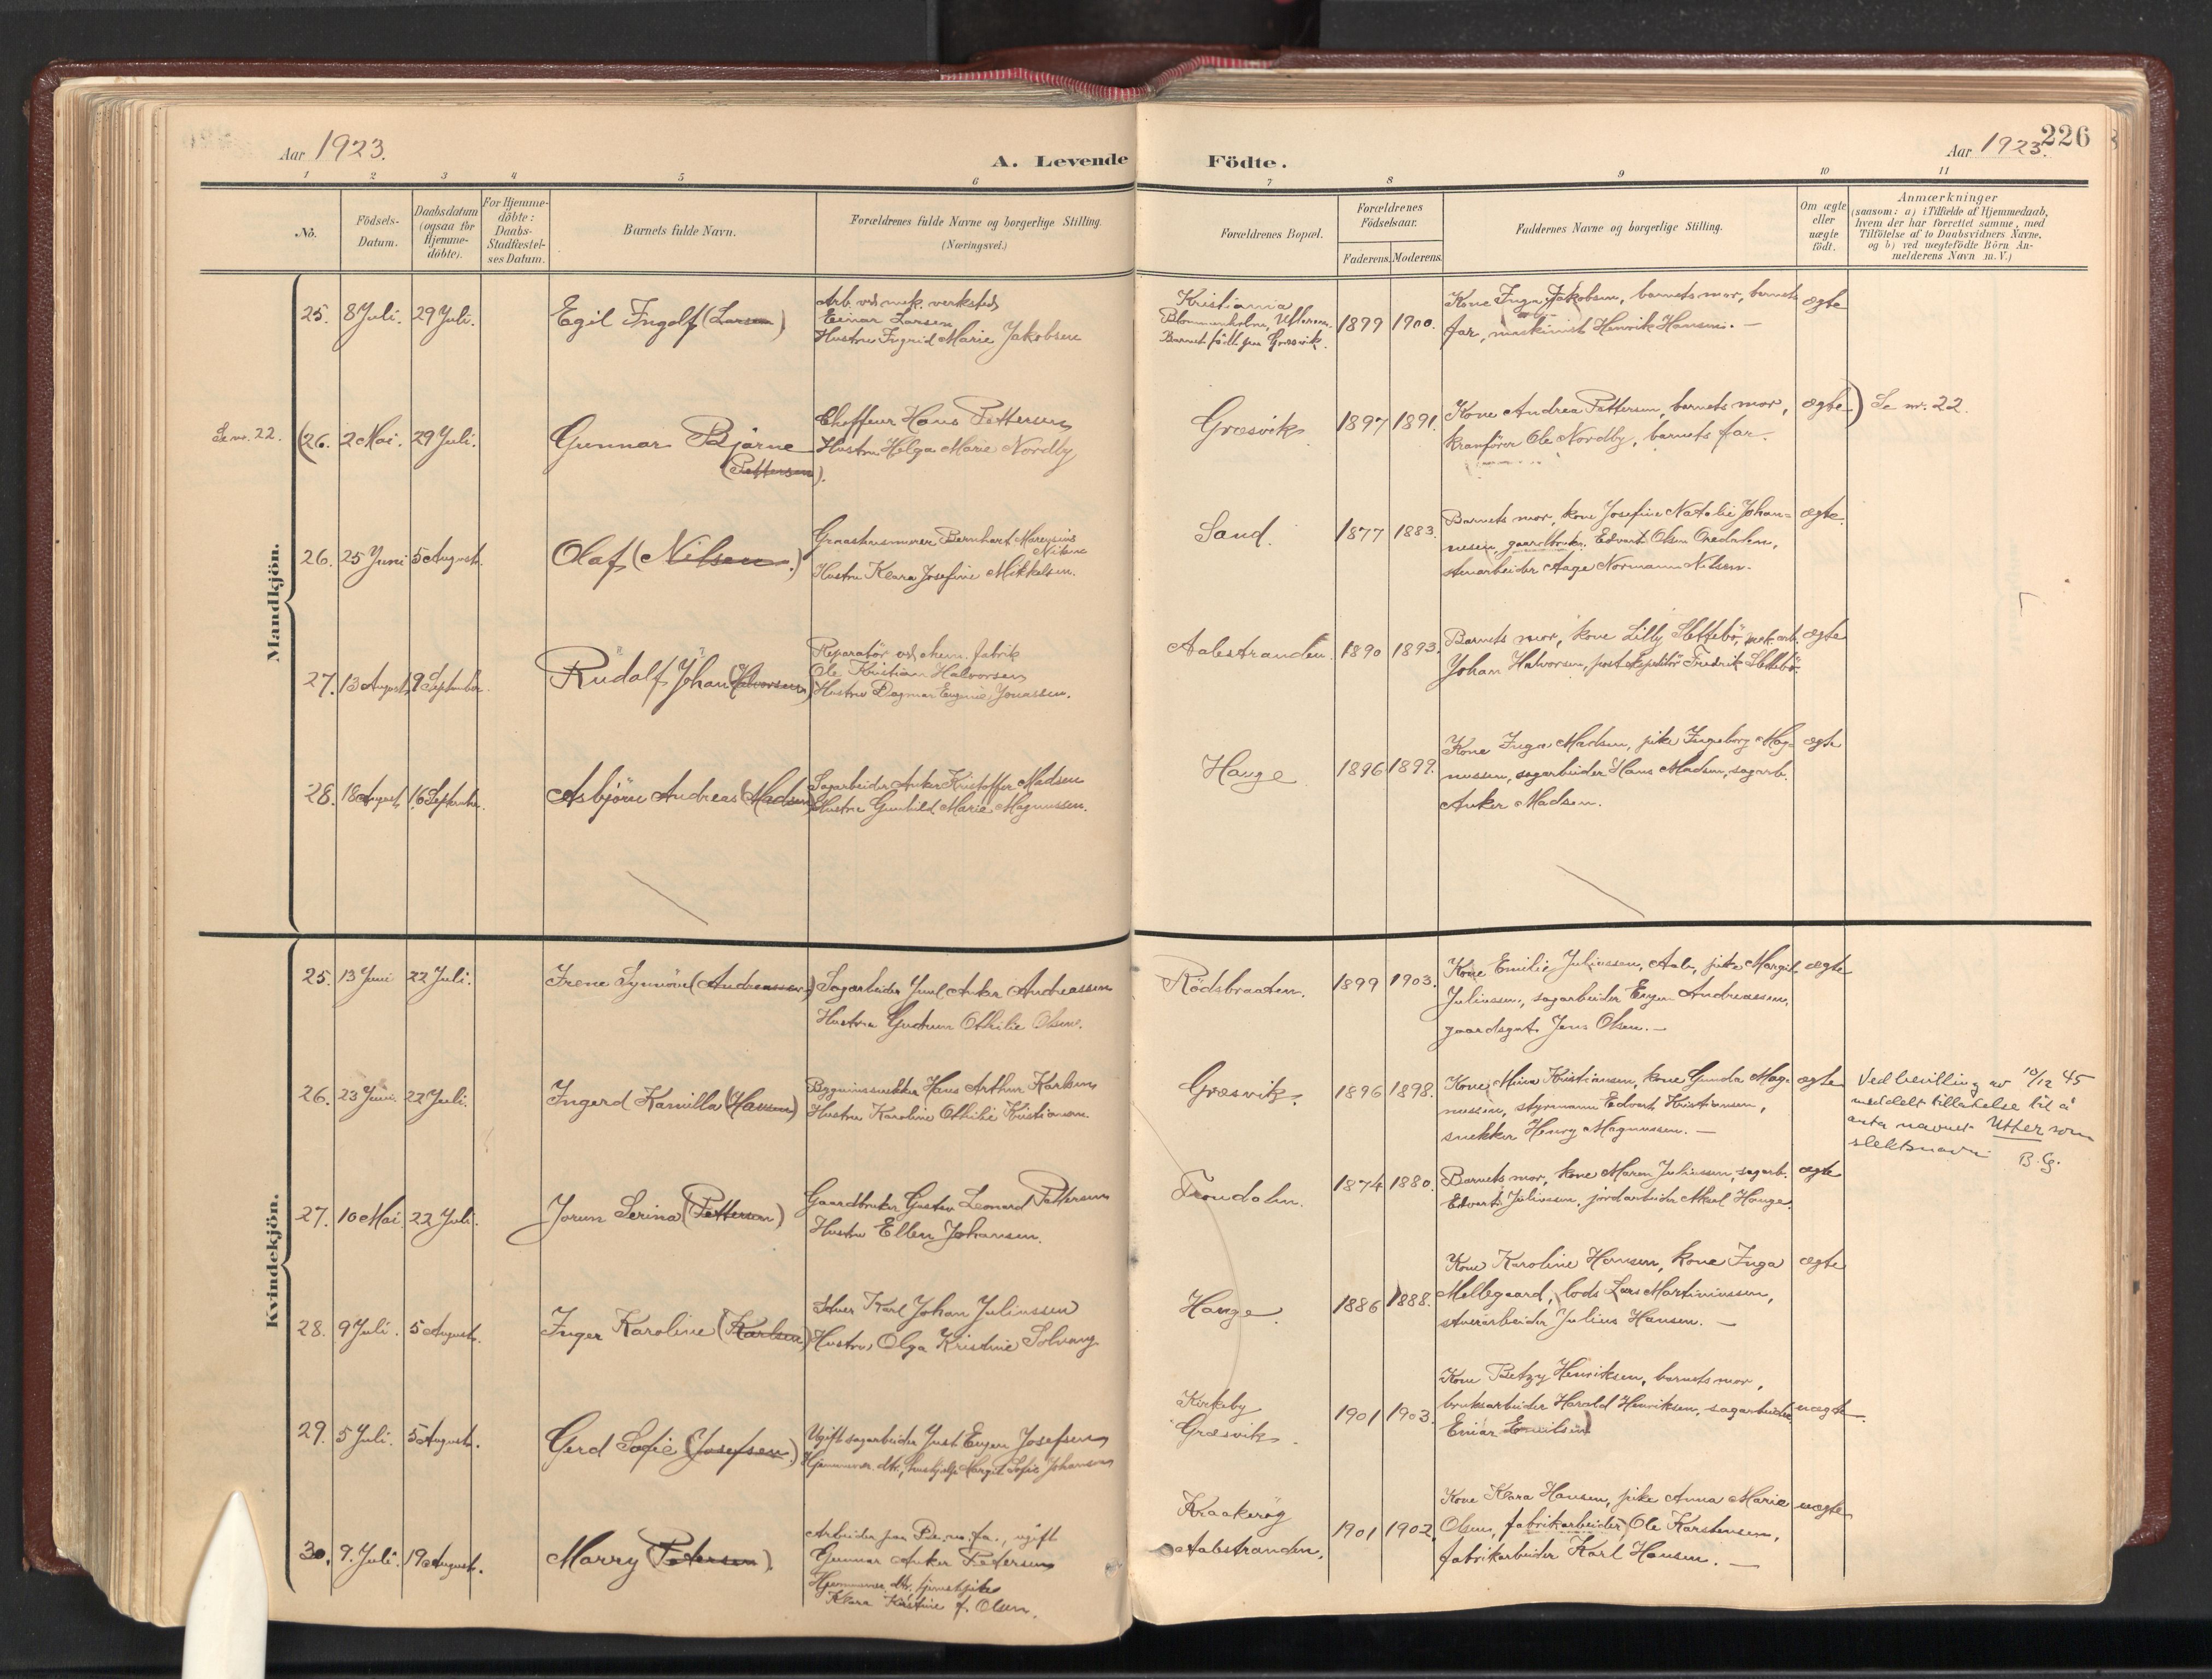 Aar 1923.
A. Levende
Födte.
Aar 1923.
226
1 2 3 4 5 6
7 8 9 10 11
No.
Födsels-
Datum.
Daabsdatum
(ogsaa for
Hjemme-
döbte).
For Hjemme-
döbte:
Daabs-
Stadfæstel-
ses Datum.
Barnets fulde Navn.
Forældrenes fulde Navne og borgerlige Stilling.
(Næringsvei.)
Forældrenes Bopæl.
Forældrenes
Födselsaar.
Faderens. Moderens.
Faddernes Navne og borgerlige Stilling.
Om ægte
eller
uægte
födt.
Anmærkninger
(saasom: a) i Tilfælde af Hjemmedaab,
hvem der har forrettet samme, med
Tilföielse af to Daabsvidners Navne,
og b) ved uægtefödte Börn An-
melderens Navn m.V.)
Mandkjön.
25. 8 Juli. 29 Juli.
Egil Ingolf (Larsen)
Arb. ved mek. verksted
Einar Larsen
Hustru Ingrid Marie Jakobsen
Kristiania
Barnet född paa Græsvik.
1899 1900.
Kone Inga Jakobsen, barnets mor, barnets
far, maskinist Henrik Hansen. —
ægte
Se nr. 22.
(26. 2 Mai. 29 Juli.
Gunnar Bjarne
(Pettersen).
Choffeur Hans Pettersen
Hustru Helga Marie Nordby
Græsvik
1897 1891.
Kone Andrea Pettersen, barnets mor,
kranförer Ole Nordby, barnets far.
ægte)
Se nr. 22.
26. 25 Juni 5 August.
Olaf (Nilsen.)
Graastensmurer Bernhart Mareusius
Nilsen
Hustru Klara Josefine Mikkelsen.
Sand.
1877 1883.
Barnets mor, kone Josefine Natalie Johan-
nesen, gaardbruker Edvart Olsen Oredalen,
stenarbeider Aage Normann Nilsen.
ægte.
27. 13 August 9 September.
Rudolf Johan (Halvorsen)
Reparatör ved chem. fabrik
Ole Kristian Halvorsen
Hustru Dagmar Eugenie Jonassen.
Aalestranden.
1890 1893.
Barnets mor, kone Lilly Slettebö, mek. arb.
Johan Halvorsen, postexpeditör Fredrik Slettebö.
ægte
28. 18 August 16 September.
Asbjörn Andreas (Madsen)
Sagarbeider Anker Kristoffer Madsen
Hustru Gunhild Marie Magnussen.
Hauge
1896 1899.
Kone Inga Madsen, pike Ingeborg Mag-
nussen, sagarbeider Hans Madsen, sagarb.
Anker Madsen.
ægte
Kvindekjön.
25. 13 Juni 22 Juli.
Irene Synnöve (Andreassen)
Sagarbeider Juul Anker Andreassen
Hustru Gudrun Othilie Olsen.
Rödsbraaten.
1899 1903.
Kone Emilie Juliussen, Aale, pike Margit
Juliussen, sagarbeider Eugen Andreassen,
gaardsgut Jens Olsen. —
ægte
26. 23 Juni. 22 Juli.
Ingerd Kamilla (Hansen)
Bygningssnekker Hans Arthur Karlsen
Hustru Karoline Othilie Kristiansen.
Græsvik.
1896 1898.
Kone Mina Kristiansen, kone Gunda Mag-
nussen, styrmann Edvart Kristiansen,
snekker Henry Magnussen. —
ægte
Ved bevilling av 10/12 45
meddelt tillatelse til å
anta navnet Utter som
slektsnavn
B.G.
27. 10 Mai 22 Juli.
Jorun Serina (Pettersen)
Gaardbruker Gustav Leonard Pettersen
Hustru Ellen Johansen.
Trondalen.
1874 1880.
Barnets mor, kone Maren Juliussen, sagarb.
Edvart Juliussen, jordarbeider Karl Hauge.
ægte
28. 9 Juli. 5 August.
Inger Karoline (Karlsen)
Stuer Karl Johan Juliussen
Hustru Olga Kristine Solvang
Hauge.
1886 1888.
Kone Karoline Hansen, kone Inga
Mellegaard, lods Lars Martiniussen,
stuerarbeider Julius Hansen. —
ægte
29. 5 Juli. 5 August.
Gerd Sofie (Josefsen.)
Ugift sagarbeider Just Eugen Josefsen
Hjemmevær. dtr., hushjelp Margit Sofie Johansen
Kirkeby
Græsvik.
1901 1903.
Kone Betzy Henriksen, barnets mor,
bruksarbeider Harald Henriksen, sagarbeider
Einar Emilsen
uægte.
30. 9. Juli. 19 August.
Marry (Petersen).
Arbeider paa De. no. fa., ugift
Gunnar Anker Petersen
Hjemmevær. dtr. tjenestpike
Klara Kristine f. Olsen.
Kraakeröy
Aalestranden.
1901 1902.
Kone Klara Hansen, pike Anna Marie
Olsen, fabrikarbeider Ole Karstensen,
fabrikarbeider Karl Hansen. —
uægte